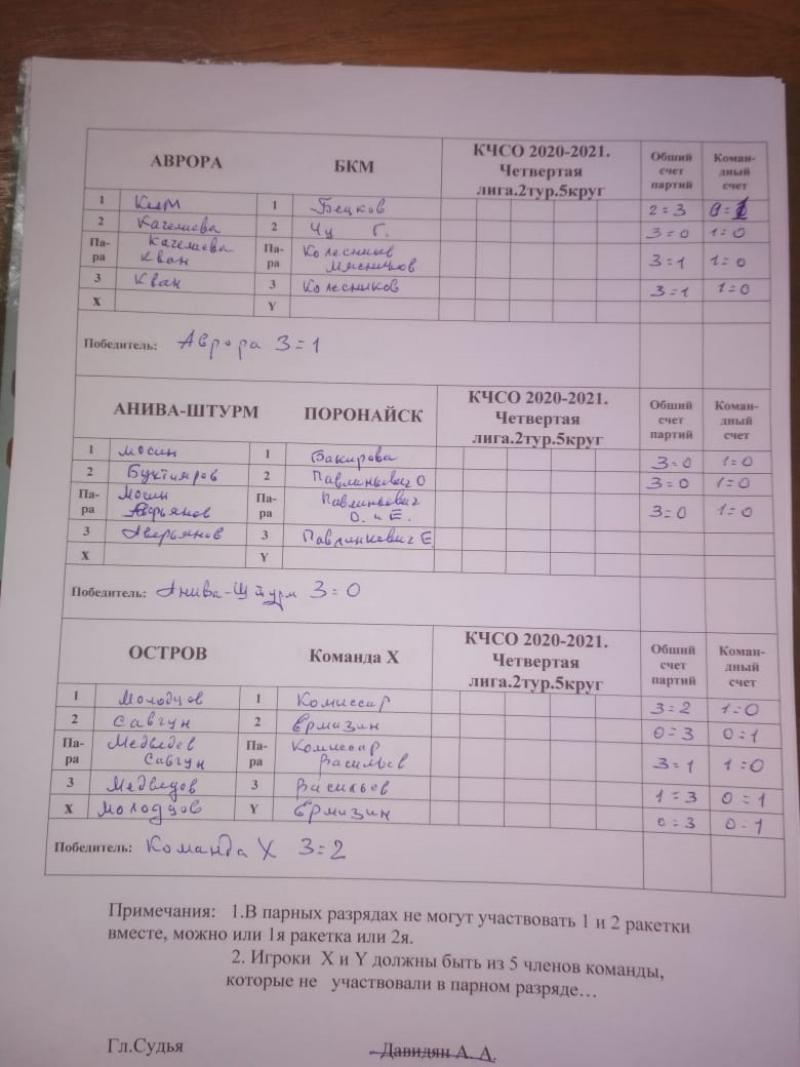 АВРОРА БКМ КЧСО 2020-2021. Четвертая лига.2тур.5круг Общий счет партий Коман-дный счет
1 Ким 1 Бецков 2=3 0=1
2 Качелаева 2 Чу Г. 3=0 1=0
Па-ра Качелаева Кван Па-ра Колесников Мясников 3=1 1=0
3 Кван 3 Колесников 3=1 1=0
X Y
Победитель: Аврора 3=1
АНИВА-ШТУРМ ПОРОНАЙСК КЧСО 2020-2021. Четвертая лига.2тур.5круг Общий счет партий Коман-дный счет
1 Мосин 1 Бакирова 3=0 1=0
2 Буктияров 2 Павлинкович О 3=0 1=0
Па-ра Мосин Аверьянов Па-ра Павлинкович О. и Е. 3=0 1=0
3 Аверьянов 3 Павлинкевич Е.
X Y
Победитель: Анива-Штурм 3=0
ОСТРОВ Команда X КЧСО 2020-2021. Четвертая лига.2тур.5круг Общий счет партий Коман-дный счет
1 Молодцов 1 Комиссар 3=2 1=0
2 Савгун 2 Ермизин 0=3 0=1
Па-ра Медведев Савгун Па-ра Комиссар Васильев 3=1 1=0
3 Медведев 3 Васильев 1=3 0=1
X Молодцов Y Ермизин 0=3 0=1
Победитель: Команда X 3=2
Примечания: 1.В парных разрядах не могут участвовать 1 и 2 ракетки
вместе, можно или 1я ракетка или 2я.
2. Игроки X и Y должны быть из 5 членов команды,
которые не участвовали в парном разряде…
Гл.Судья Давидян А. А.